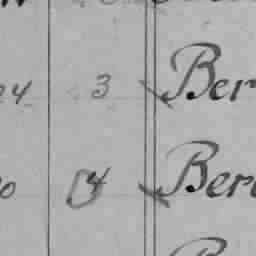 24 3 Ber
0 4 Ber